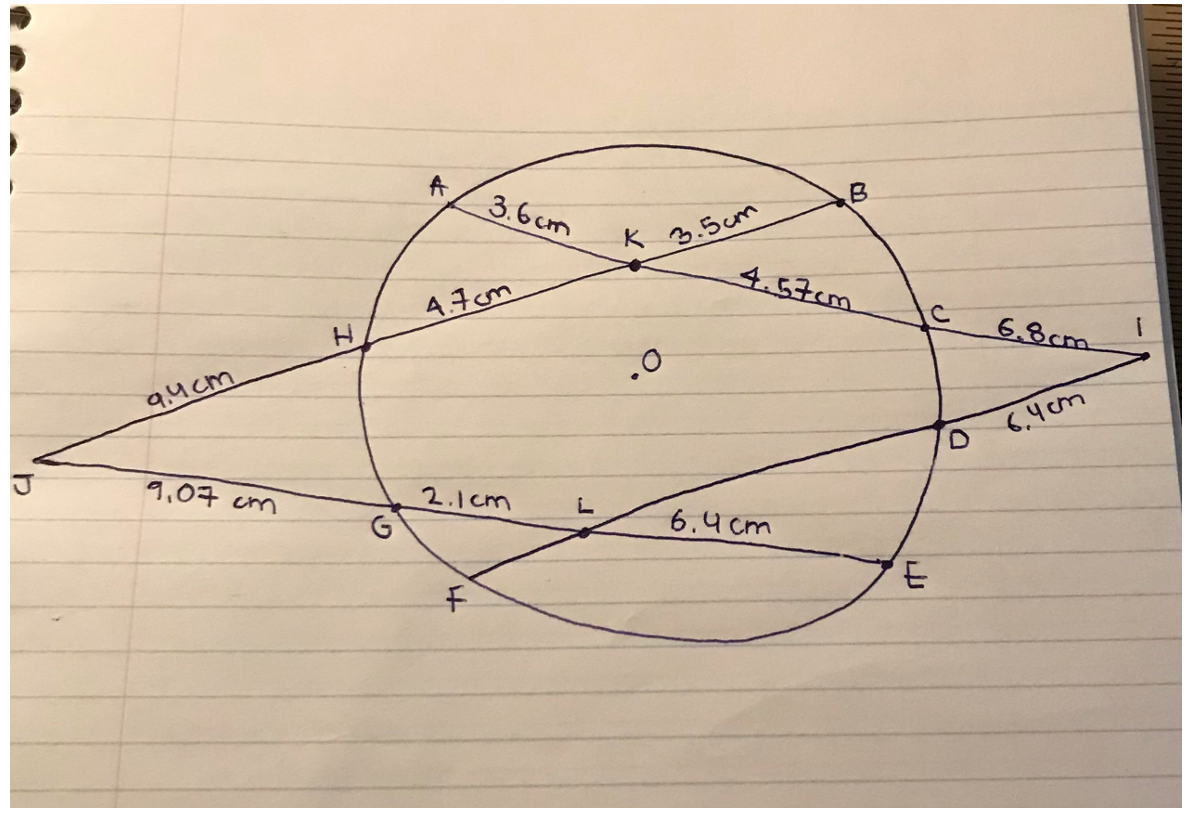 A
B
3.6cm
K
3.5cm
4.7cm
4.57cm
H
C
6.8cm
I
.O
9.4cm
6.4cm
D
J
9.07 cm
G
2.1cm
L
6.4cm
F
E